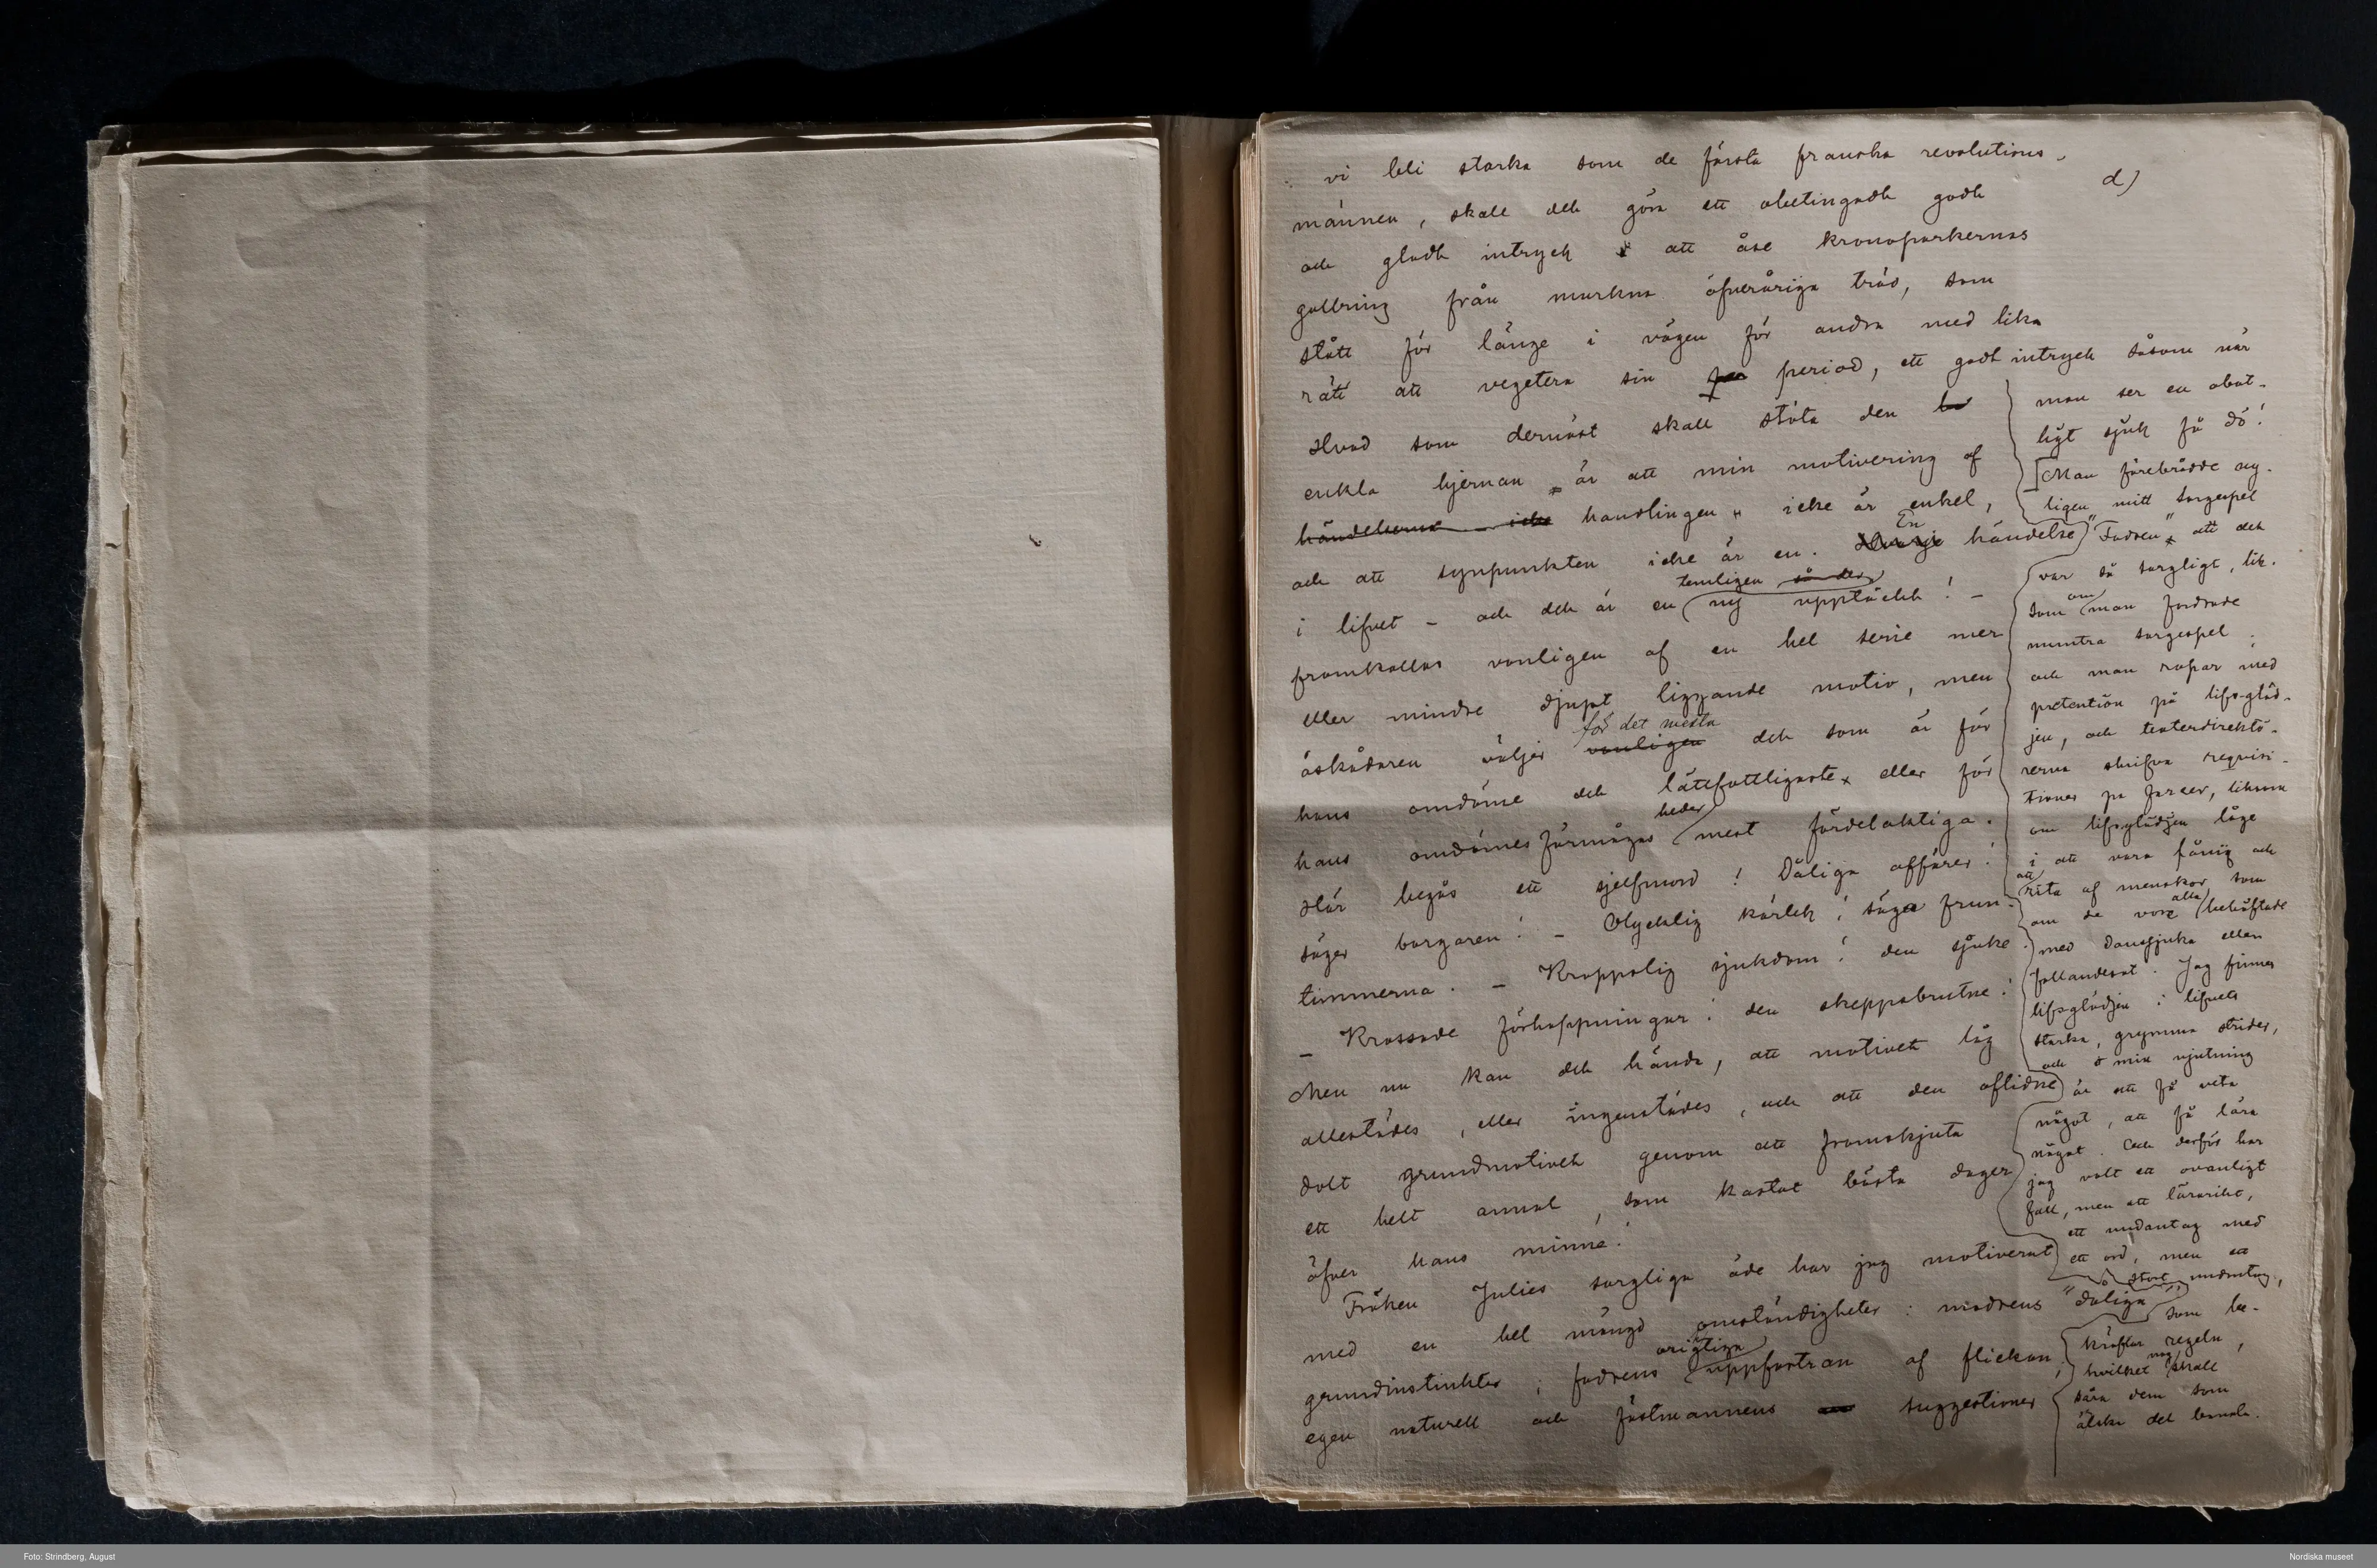 vi bli starka som de första franska revolutions-
d)
männen, skall det göra ett obetingadt godt
och gladt intryck att åse kronoparkernas
gallring från murkna öfveråriga träd, som
stått för länge i vägen för andra med lika
rätt att vegetera sin period, ett godt intryck såsom när
man ser en obot-
ligt sjuk få dö!
Hvad som dernäst skall stöta den
enkla hjernan är att min motivering af
händelserna icke handlingen icke är enkel,
och att synpunkten icke är en. En händelse
i lifvet – och det är en temligen så der ny upptäckt! –
framkallas vanligen af en hel serie mer
eller mindre djupt liggande motiv, men
åskådaren väljer vanligen för det mesta det som är för
hans omdöme det lättfattligaste eller för
hans omdömesförmågas heder mest fördelaktiga.
Här begås ett sjelfmord! Dåliga affärer!
säger borgaren! – Olycklig kärlek! säga frun-
timmerna. – Kroppslig sjukdom! den sjuke.
– Krossade förhoppningar! den skeppsbrutne!
Men nu kan det hända, att motivet låg
allestädes, eller ingenstädes, och att den aflidne
dolt grundmotivet genom att framskjuta
ett helt annat, som kastat bästa dager
öfver hans minne!
Fröken Julies sorgliga öde har jag motiverat
med en hel mängd omständigheter: modrens "dåliga"
grundinstinkter; fadrens origtiga uppfostran af flickan;
egen naturell och fästmannens suggestioner
[Man förebrådde ny-
ligen mitt sorgespel
"Fadren" att det
var så sorgligt, lik-
som om man fordrade
muntra sorgespel.
och man ropar med
pretention på lifsgläd-
jen, och teaterdirektö-
rerna skrifva reqvisi-
tioner på farcer, liksom
om lifsglädjen låge
i att vara fånig och
att rita af menskor som
om de vore alla behäftade
med danssjuka eller
fallandesot. Jag finner
lifsglädjen i lifvets
starka, grymma strider,
och min njutning
är att få veta
något, att få lära
något. Och derför har
jag valt ett ovanligt
fall, men ett lärorikt,
ett undantag med
ett ord, men ett
stort undantag,
som be-
kräftar regeln,
hvilket nog skall
såra dem som
älska det banala.
Foto: Strindberg, August
Nordiska museet